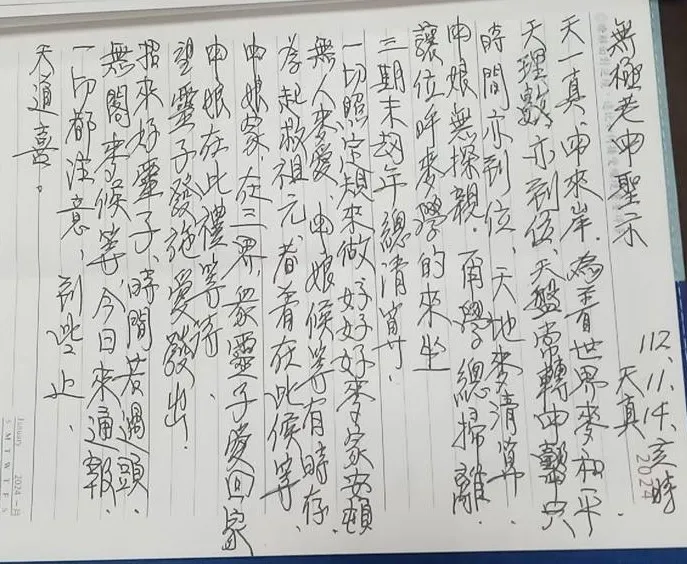 無極老母聖示
112.11.14.亥時
天真
天一真、母來岸.為著世界來和平
天理數亦到位、天盤常轉母韻只
時間亦到位、天地來清算
母娘無探親.兩學總掃離
讓位呼來學的來坐
三期末劫年總清算.
一切照宗規來做好好好來家安頓
無人來愛、母娘候等有時存.
為起救祖元.看著在此候等.
母娘家.在三界.眾靈子愛回家
母娘在此禮等待.
望靈子發施愛發出.
招來好靈子、時間若過頭
無閣來候等.今日來通報.
一切都注意、到此止.
天通喜。
2024
January
2024 一月
S M T W T F S